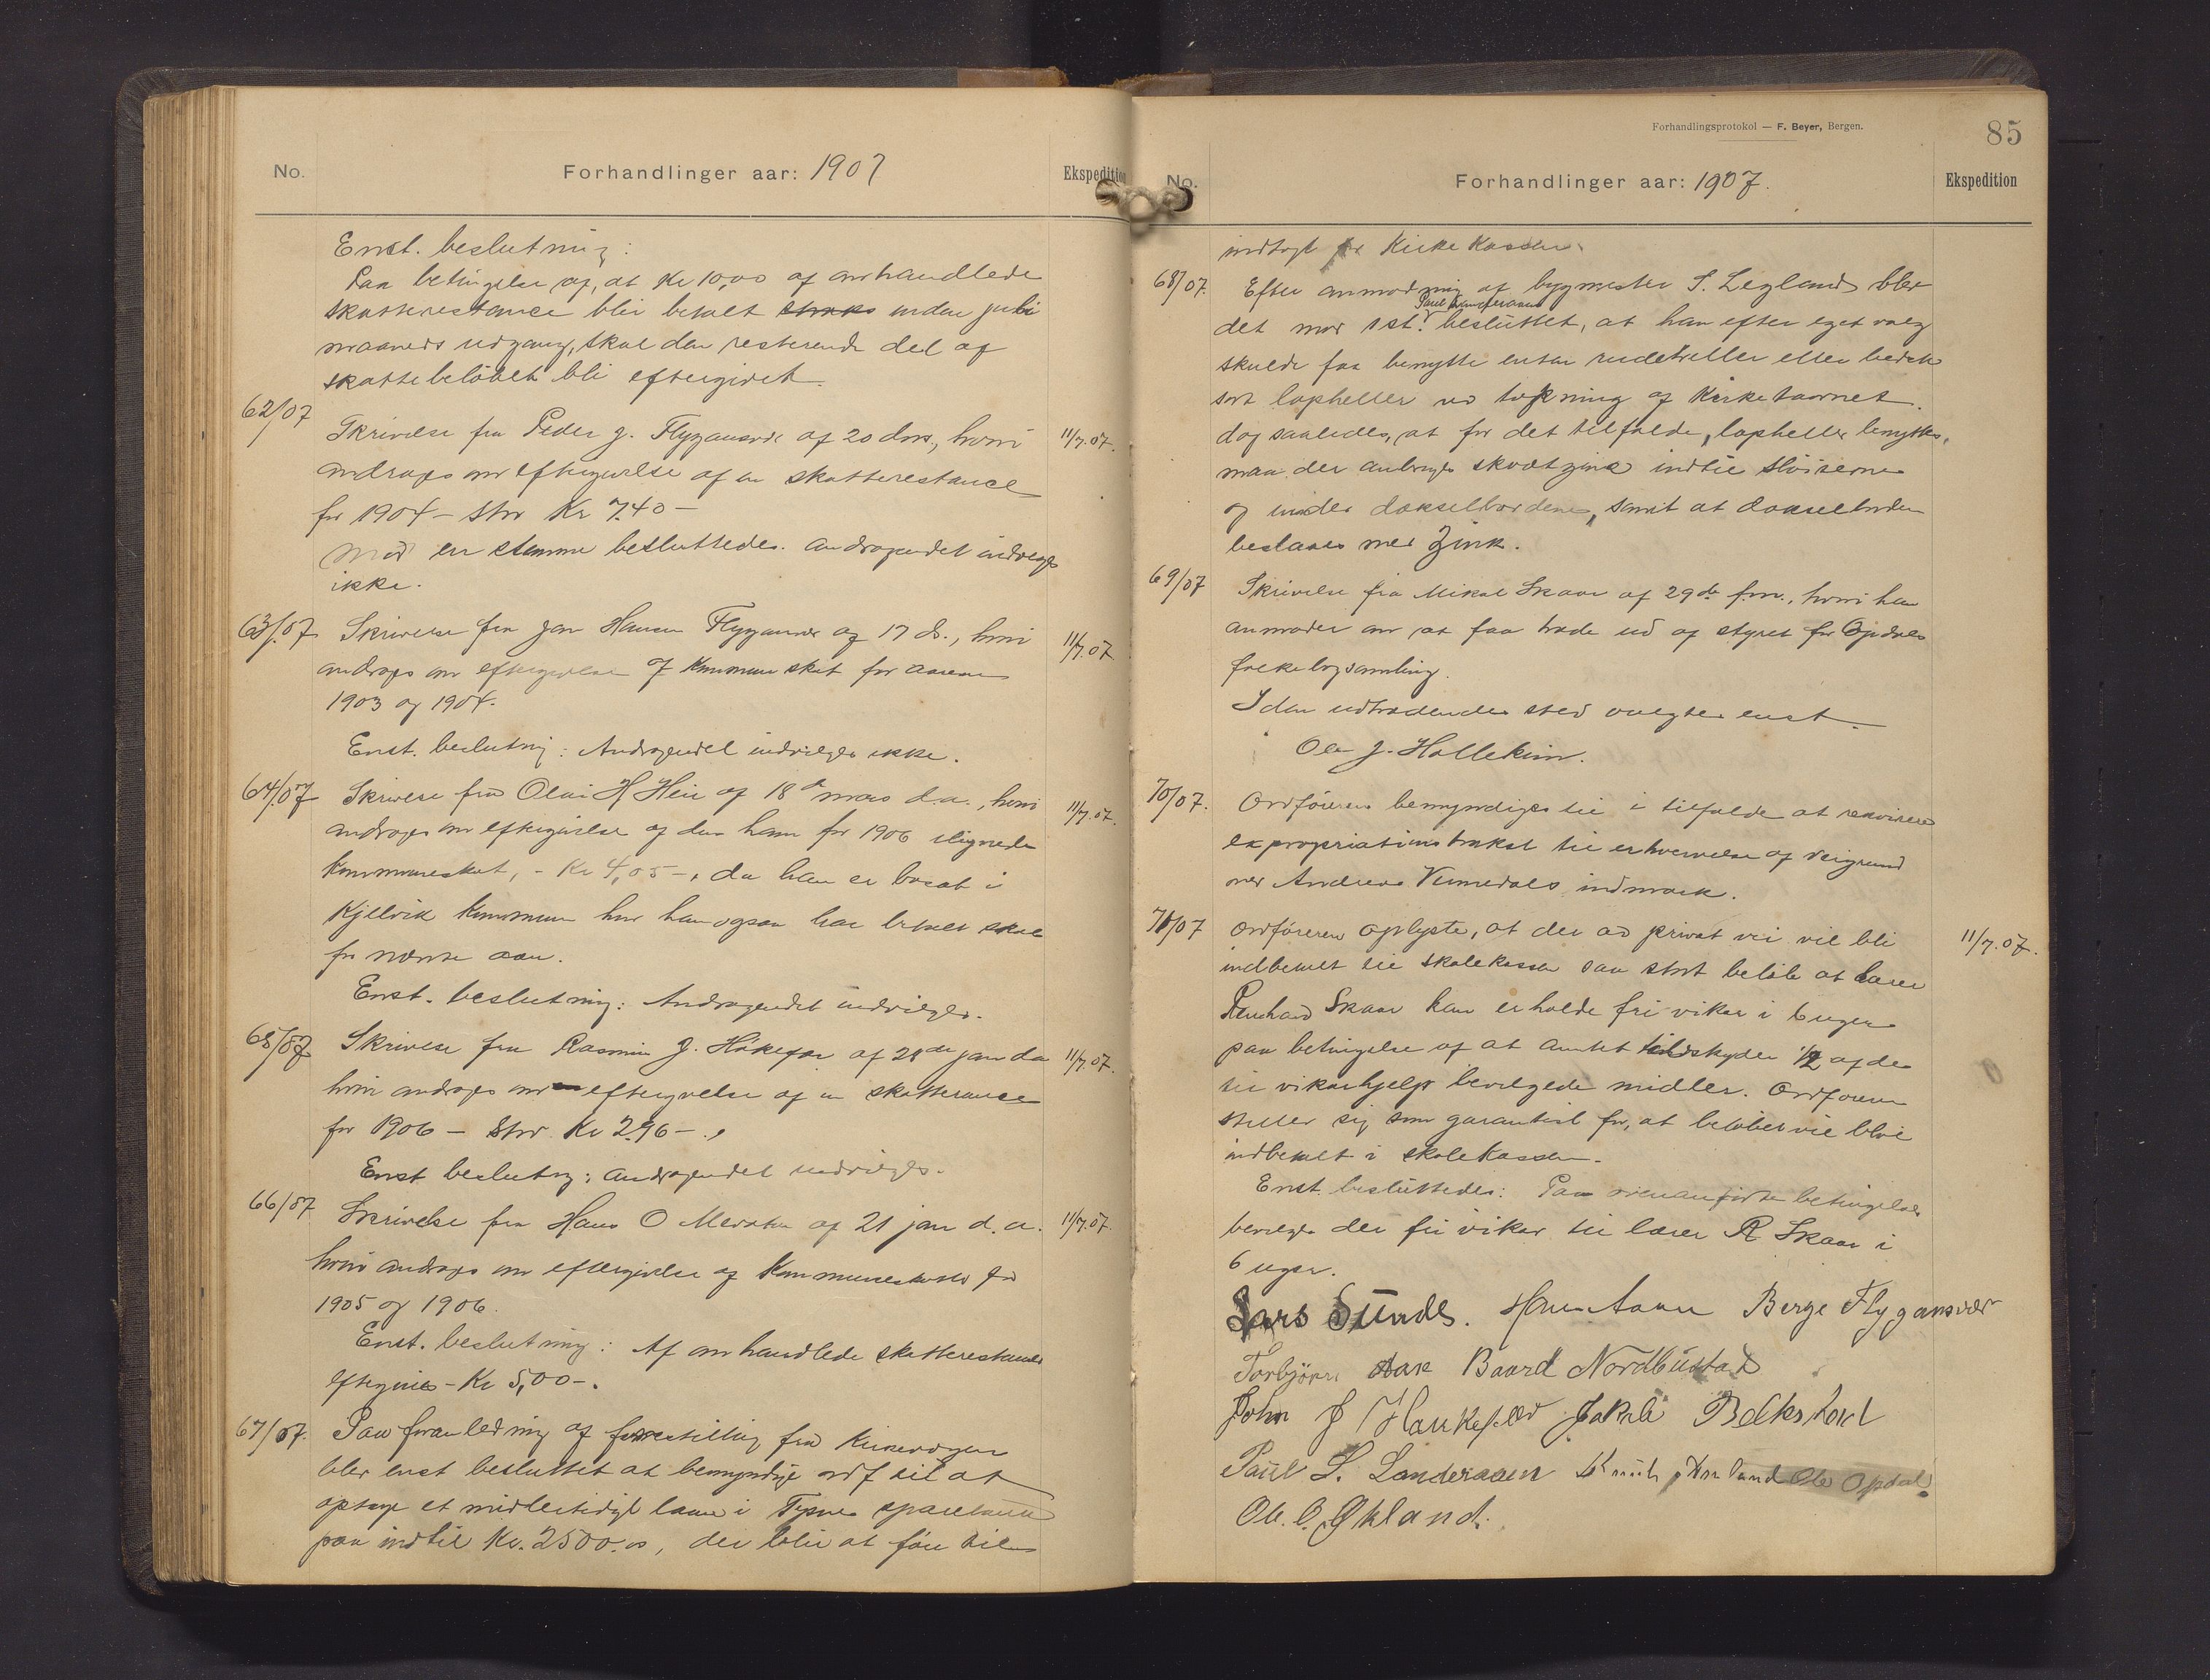 No.
Forhandlinger aar: 1907
Ekspedition
Enst. beslutning:
Paa betingelse af, at Kr 10,00 af omhandlede
skatterestance blir betalt straks inden juli
maaneds udgang, skal den resterende del af
skattebeløbet bli eftergivet.
62/07
Skrivelse fra Peder J. Flygansvær af 20 dms., hvori
11/7.07.
androges om eftergivelse af en skatterestance
for 1904 – stor Kr 7.40 –
Mod en stemme besluttedes. Andragendet indvilges
ikke.
63/07
Skrivelse fra Jan Hansen Flygansvær af 17 ds., hvori
11/7.07.
androges om eftergivelse af kommuneskat for aarene
1903 og 1904.
Enst. beslutning: Andragendet indvilges ikke.
64/07
Skrivelse fra Olai H Heie af 18de mars d.a., hvori
11/7.07.
androges om eftergivelse af den ham for 1906 ilignede
kommuneskat, – Kr 4,05 –, da han er bosat i
Kjelvik kommune hvor han ogsaa har betalt skat
for nævnte aar.
Enst. beslutning: Andragendet indvilges.
65/07
Skrivelse fra Rasmus J. Håkefær af 28de jan da
11/7.07.
hvori androges om eftergivelse af en skatterance
for 1906 – stor Kr 2.96 –,
Enst beslutng: Andragendet indvilges.
66/07
Skrivelse fra Hans O af 21 jan d.a.
11/7.07.
hvori androges om eftergivelse af kommuneskatter for
1905 og 1906.
Enst. beslutning: Af omhandlede skatterestance
eftergives – Kr 5,00 –.
67/07.
Paa foranledning af forestilling fra kirkeværgen
blev enst besluttet at bemyndige ordf til at
optage et midlertidigt laan i Tysnes sparebank
paa indtil Kr. 2500.00, der blir at føre til
Forhandlingsprotokol — F. Beyer, Bergen.
85
No.
Forhandlinger aar: 1907.
Ekspedition
indtægt for Kirkekassen.
68/07.
Efter anmodning af bygmester S. Legland blev
Paul Landeraaen
det mod 1 st. besluttet, at han efter eget valg
skulde faa benytte enten rudeheller eller bedste
sort lapheller ved tækning af Kirketaarnet.
dog saaledes, at for det tilfælde, lapheller benyttes,
maa der anbringes skvætzink indtil
og under dækselbordene, samt at dækselborden
beslaaes med Zink.
69/07
Skrivelse fra Mikal Skaar af 29de f.m., hvori han
anmoder om at faa træde ud af styret for Opdals
folkebogsamling.
I den udtrædendes sted valgtes enst.
Ole J. Hollekim.
70/07.
Ordføreren bemyndiges til i tilfælde at rekvirere
expropriationstakst til erhvervelse af veigrund
over Andreas Vennedals indmark.
71/07
Ordføreren oplyste, at der ad privat vei vil bli
11/7.07.
indbetalt til skolekassen saa stort beløb at lærer
Skaar kan erholde fri vikar i 6 uger
paa betingelse af at amtet tildskyder 1/2 af de
til vikarhjelp bevilgede midler. Ordføreren
stiller sig som garantist for, at beløbet vil blive
indbetalt i skolekassen.
Enst. besluttedes: Paa ovenanførte betingelser
bevilges der fri vikar til lærer R Skaar i
6 uger.
Lars Sunde. Hans Aaen Berge Flygansvær
Torbjørn Aase Baard Nordbustad
John J Haukefær Jakob Belkshard
Paul L. Landeraaen Knut Ole Opdal.
Ole O. Økland.